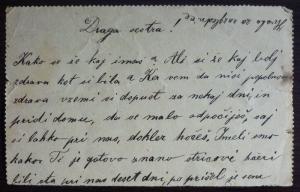 Draga sestra!
Kako se že kaj imaš? Ali si že kaj bolj
zdrava kot si bila? Ka vem da nisi popolnoma
zdrava vzemi si dopust za nekaj dni, in
pridi domu, da se malo odpočiješ, saj
si lahko pri nas, dokler hočeš. Imeli smo
kakor Ti je gotovo znano stricove hčeri
bili sta pri nas deset dni, po prišel je sam